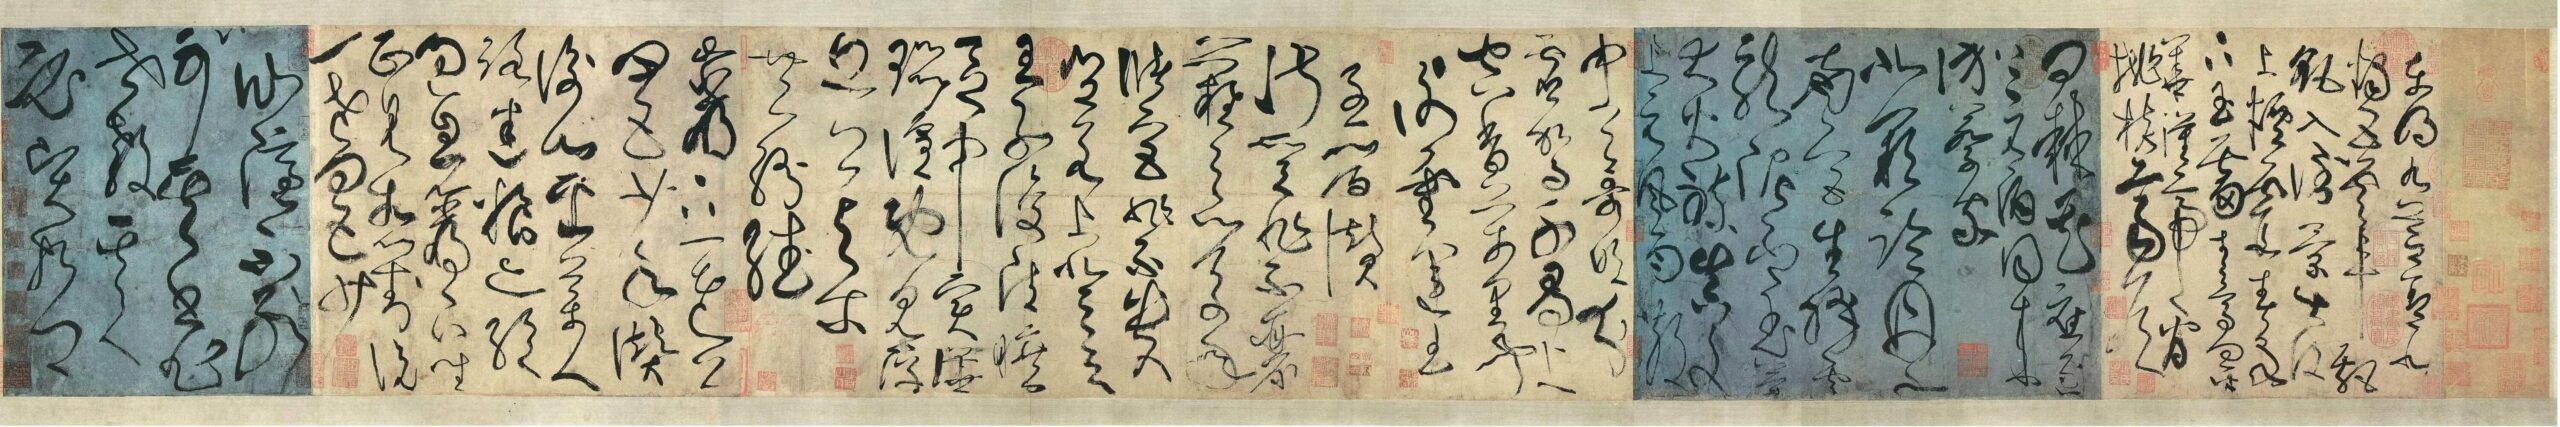 東明九芝蓋北
燭五雲車飄
飖入倒景出沒
上煙霞春泉
下玉霤青鳥向金
華漢帝看
桃核齊侯
問棗花應逐上
元酒同來
訪蔡家
北闕臨丹水
南宮生絳雲
龍泥印玉簡
大火煉真文
上元風雨散
中天哥吹分
虛駕千尋上
空香萬里聞
謝靈運王
子晉贊
淑質非不麗
難以之百年
儲宮非不貴
豈若上登天
王子復清曠
區中實譁
囂既見浮
丘公與爾
共紛繙
巖下一老公
四五少年贊
衡山採藥人
路迷糧亦絕
過息巖下坐
正見相對說
一老四五少
仙隱不別
可其書非
世教其人
必賢哲